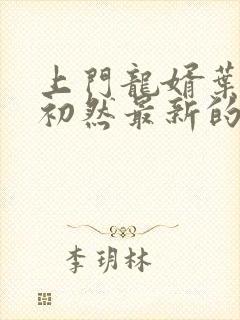 上門龍婿葉
初然最新的
李玥林